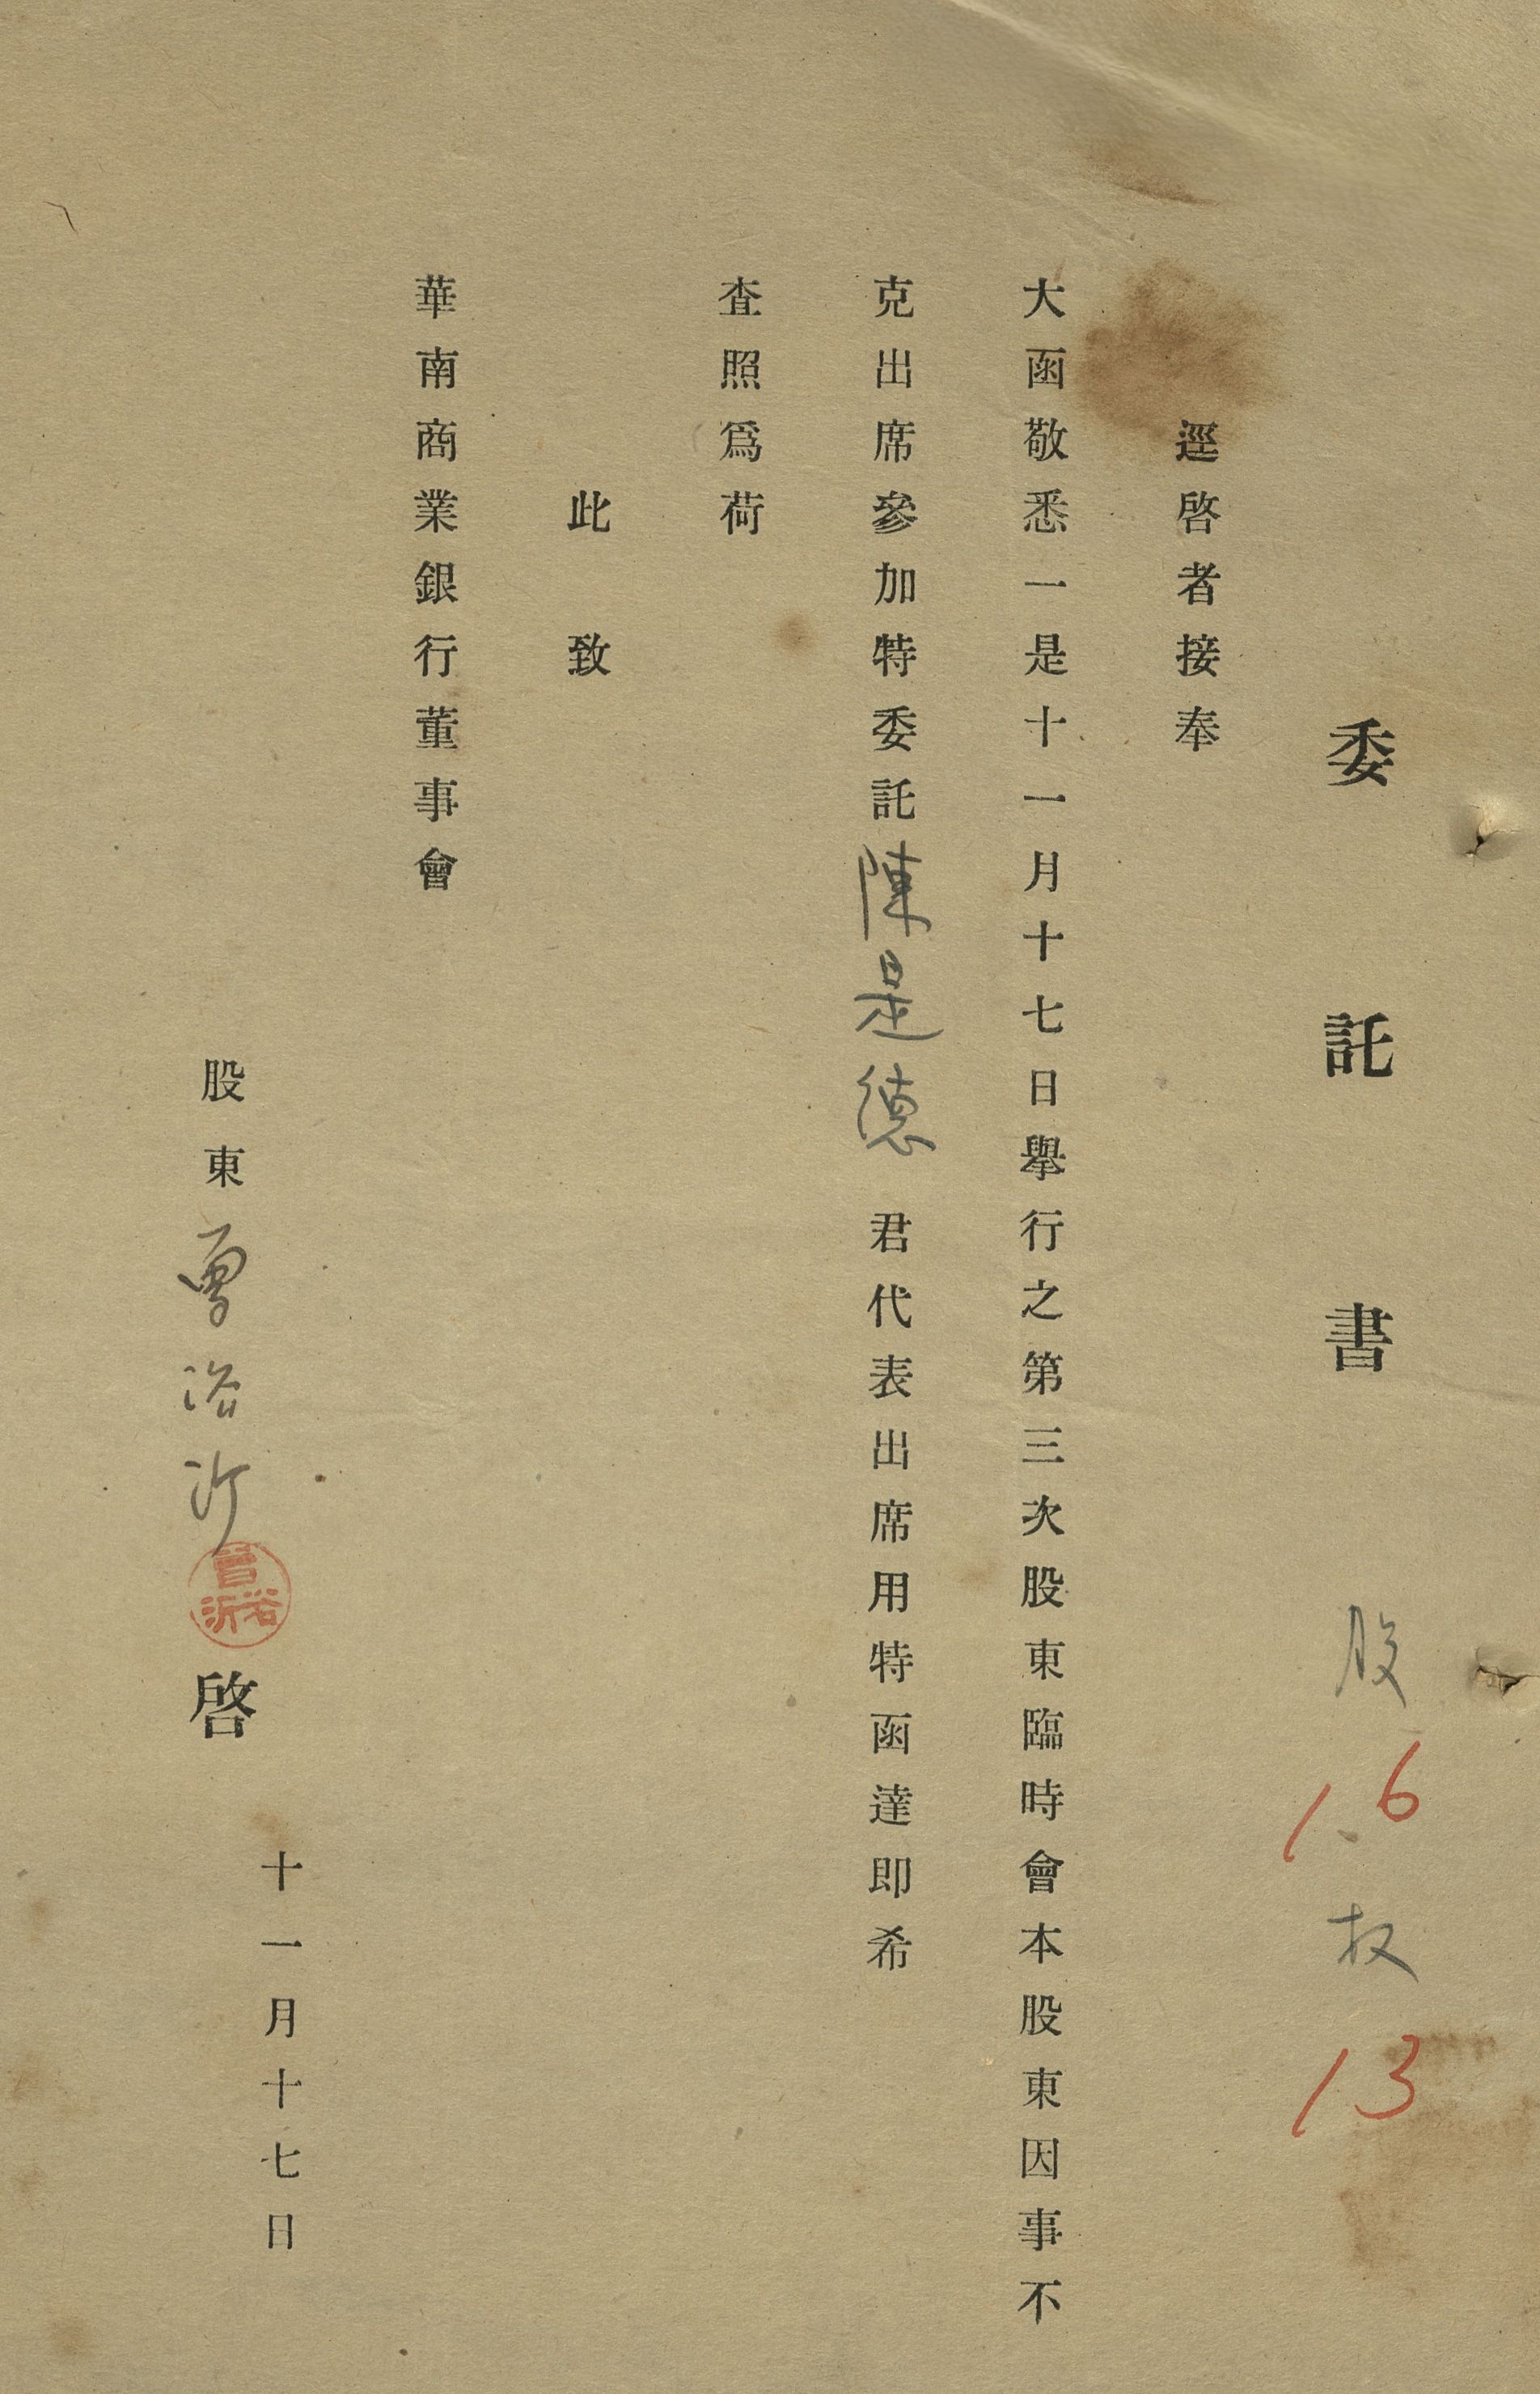 委託書
股 16 权 13
逕啓者接奉
大函敬悉一是十一月十七日舉行之第三次股東臨時會本股東因事不
克出席參加特委託陳是德君代表出席用特函達即希
查照爲荷
此致
華南商業銀行董事會
股東曾浴沂啓
曾浴沂
十一月十七日